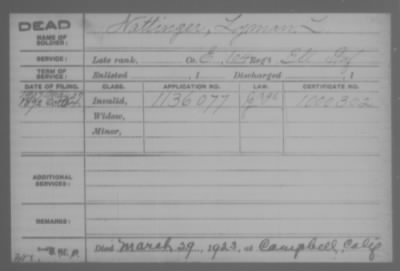 DEAD
NAME OF SOLDIER: Nattinger, Lyman L.
SERVICE: Late rank, Co. E, 104 Reg't Ill Inf
TERM OF SERVICE: Enlisted , 1 Discharged , 1
DATE OF FILING. CLASS. APPLICATION NO. LAW. CERTIFICATE NO.
Invalid, 1136077 1000302
Widow,
Minor,
ADDITIONAL SERVICES:
REMARKS:
Died March 29, 1923, at Campbell, Calif